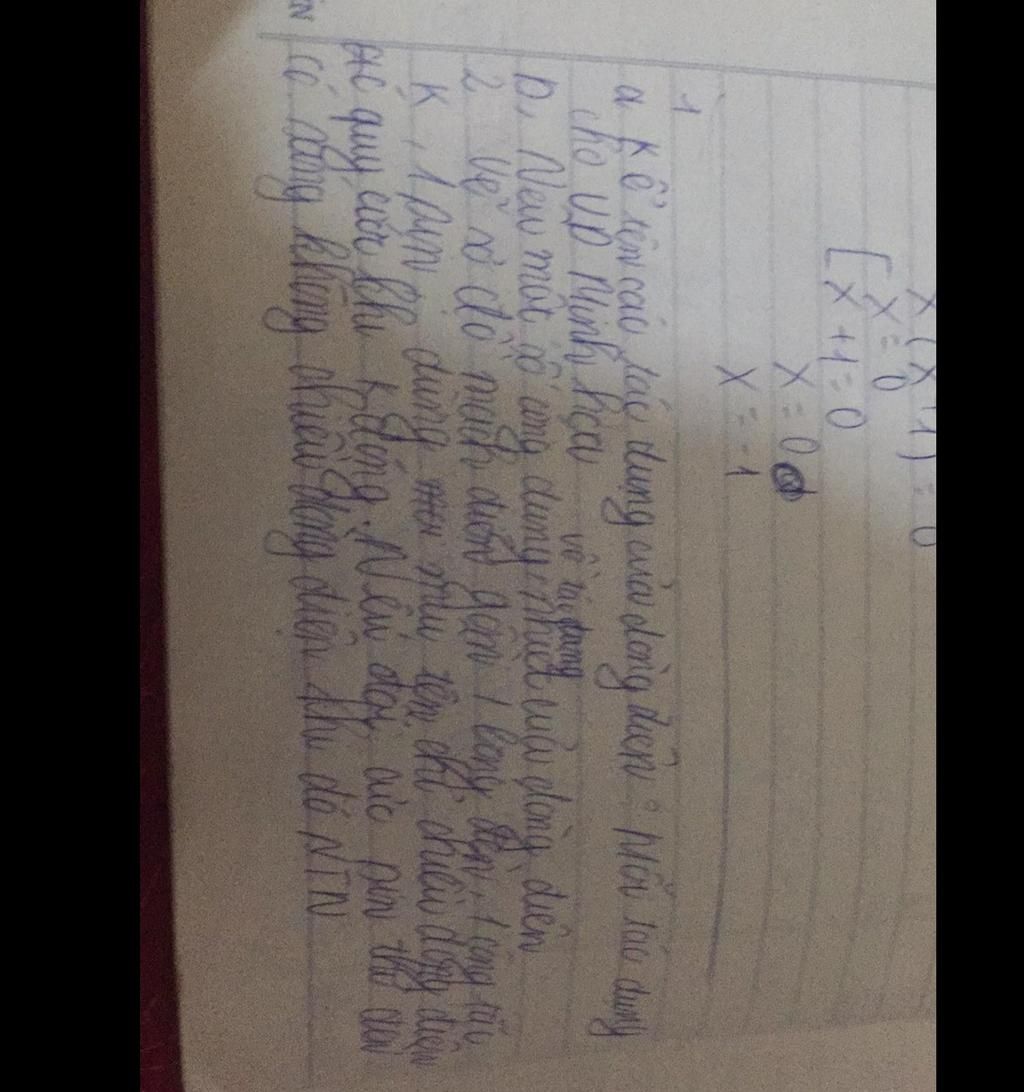 x(x+1)=0
[x=0
x+1=0
x=0
x=-1
1
a kể tên các tác dụng của dòng điện. Mỗi tác dụng
cho VD Minh họa
về tác dụng
b, Nêu một số ứng dụng nhiệt của dòng điện
2 Vẽ sơ đồ mạch điện gồm 1 bóng đèn, 1 công tắc
K, 1 pin, dùng mũi tên chỉ chiều dòng điện
quy ước khi K đóng. Nếu đổi cực pin thì đèn
có sáng không chiều dòng điện khi đó NTN